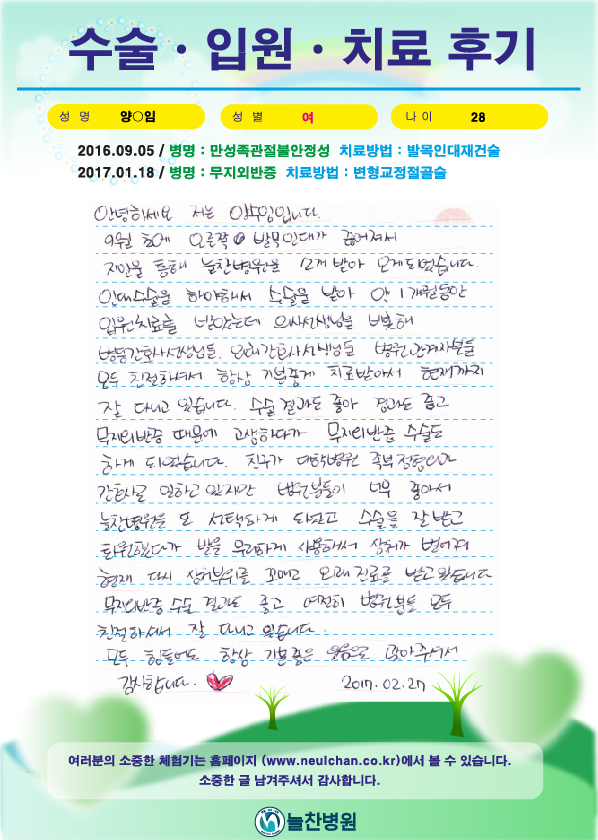 수술 · 입원 · 치료 후기
성 명 양○임 성 별 여 나 이 28
2016.09.05 / 병명 : 만성족관절불안정성 치료방법 : 발목인대재건술
2017.01.18 / 병명 : 무지외반증 치료방법 : 변형교정절골술
안녕하세요 저는 입니다.
9월 초에 오른쪽 발목인대가 끊어져서
지인을 통해 늘찬병원을 소개 받아 오게되었습니다.
인대수술을 하야해서 수술을 받아 약 1개월동안
입원치료를 받았는데 의사선생님을 비롯해
병동간호사선생님들, 외래간호사선생님들 병원관계자분들
모두 친절하셔서 항상 기분좋게 치료받아서 현재까지
잘 다니고 있습니다. 수술결과도 좋아 경과도 좋고
무지외반증 때문에 고생하다가 무지외반증 수술도
하게 되었습니다. 친구가 대학병원 족부정형외과
간호사로 일하고 있지만 병원분들이 너무 좋아서
늘찬병원을 또 선택하게 되었고 수술을 잘받고
퇴원했다가 발을 무리하게 사용해서 상처가 벌어져
현재 다시 상처부위를 꼬매고 외래진료를 받고있습니다
무지외반증 수술 결과도 좋고 여전히 병원분들 모두
친절하셔서 잘 다니고 있습니다.
모두 힘들어도 항상 기분좋은 웃음으로 맞아주셔서
감사합니다. 2017.02.27
여러분의 소중한 체험기는 홈페이지 (www.neulchan.co.kr)에서 볼 수 있습니다.
소중한 글 남겨주셔서 감사합니다.
늘찬병원